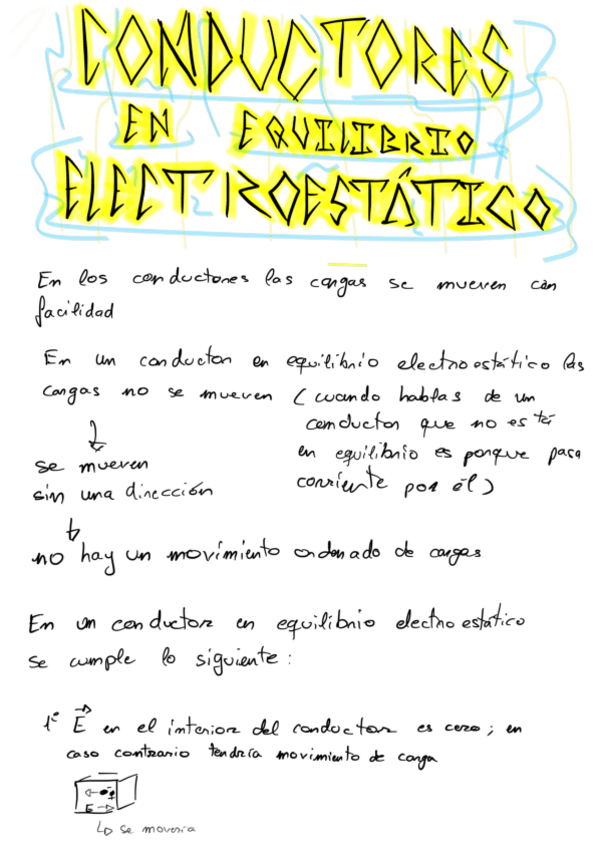 CONDUCTORES
EN EQUILIBRIO
ELECTROESTÁTICO
En los conductores las cargas se mueven con
facilidad
En un conductor en equilibrio electroestático las
cargas no se mueven (cuando hablas de un
conductor que no está
en equilibrio es porque pasa
corriente por él)
↓
se mueven
sin una dirección
↓
no hay un movimiento ordenado de cargas
En un conductor en equilibrio electroestático
se cumple lo siguiente:
1º E⃗ en el interior del conductor es cero; en
caso contrario tendría movimiento de carga
E →
↳ se movería